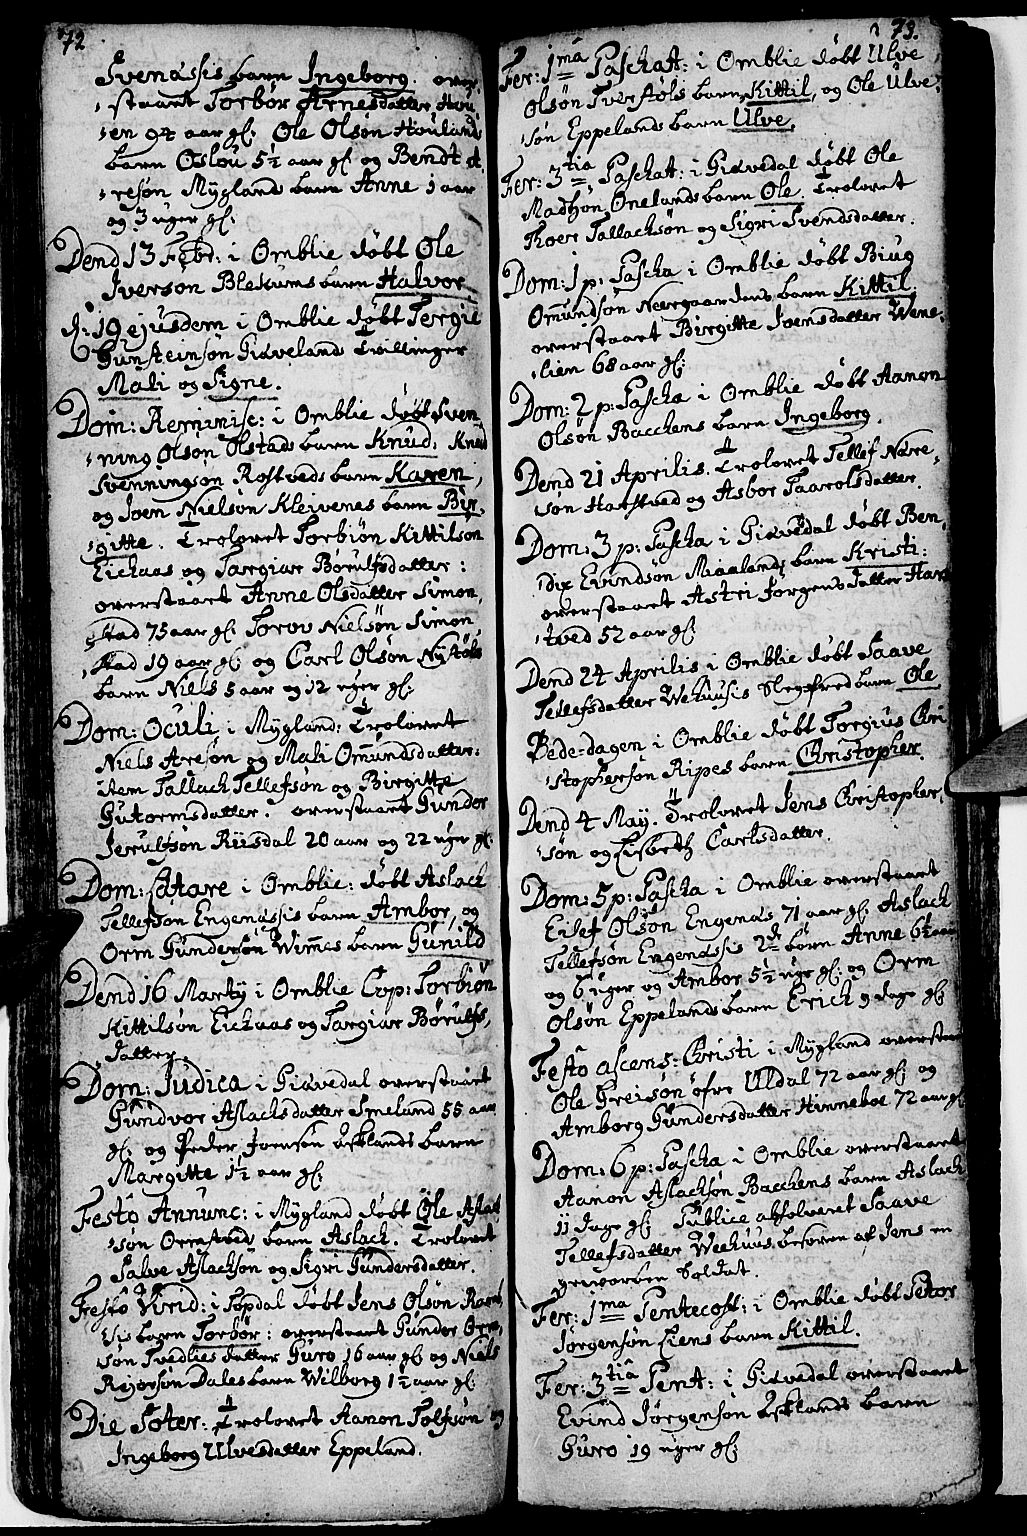 72
Svenassis barn Ingeborg. over,
,staaet Torbor Arnesdatter Hou,
,en 94 aar gl: Ole Olsøn Houlands
barn Oslou 5½ aar gl: og Bendt
,resøn Mygland barn Anne 1 aar
og 3 uger gl:
Dend 13 Febr: i Omblie døbt Ole
Iverson Blekums barn Halvor.
d: 19 ejusdem i Omblie døbt Tergie
Gunsteinsøn Gixveland Tvillinger
Mali og Signe.
Dom: Reminisc: i Omblie døbt Sven,
,ning Olson Olstads barn Knud. Knud
Svenningsøn Rostveds barn Karen,
og Joen Nielsøn Kleivenes barn Bir,
,gitte. Trolovet Torbiön Kittilsøn
Eickaas og Targiær Børulfsdatter:
overstaaet Anne Olsdatter Simon,
,stad 75 aar gl: Torov Nielsøn Simon
,stad 19 aar gl: og Carl Olsøn Nystøls
barn Niels 5 aar og 12 uger gl:
Dom: Oculi, i Mygland: Trolovet
Niels Aresøn og Mali Omundsdatter:
item Tallach Tellefsøn og Birgitte
Gutormsdatter. overstaaet Gunder
Jerulfsøn Riisdal 20 aar og 22 uger gl:
Dom: Lætare i Omblie: døbt Aslach
Tellefsøn Engenæssis barn Ambor, og
Orm Gundersøn Wimes barn Gunild
Dend 16 Marty i Omblie Cop: Torbiön
Kittilsøn Eickaas og Targiær Børulfs,
,datter.
Dom: Judica i Gixvedal overstaaet
Gundvor Aslachsdatter Smeland 55 aar
gl: og Peder Joensøn Æsklands barn
Margitte 1½ aar gl:
Festo Annunc: i Mygland døbt Ole Aslach
,søn Ormstveds barn Aslach. Trolovet
Salve Aslachsøn og Sigri Gundersdatter.
Festo Virid: i Topdal døbt Jens Olsøn
,sis barn Torbør: overstaaet Gunder Orm,
søn Tvedlies datter Guro 16 aar gl: og Niels
Rejorsøn Dales barn Wilborg 1½ aar gl:
Die Joter: Trolovet Aanon Tolfsøn og
Ingeborg Ulvesdatter Eppeland.
73.
Fer: 1ma Paschat: i Omblie døbt Ulve
Olsøn Tverstøls barn Kittil, og Ole Ulve,
,søn Eppelands barn Ulve.
Fer: 3tia Paschat: i Gixvedal døbt Ole
Madtzon Onelands barn Ole. Trolovet
Thoer Tallachsøn og Sigri Svendsdatter.
Dom: 1 p: Pascha i Omblie døbt Biug
Omundsøn Neergaardens barn Kittil.
overstaaet Birgitte Joensdatter Wene,
,lien 68 aar gl:
Dom: 2 p: Pascha i Omblie døbt Aanon
Olsøn Bacchens barn Ingeborg.
Dend 21 Aprilis. Trolovet Tellef Nere,
,søn Hartved og Asbor Taarolsdatter.
Dom: 3 p: Pascha i Gixvedal døbt Ben,
,dix Evindsøn Maalands barn Kristi:
overstaaet Astri Jørgensdatter Hart
,tved 52 aar gl:
Dend 24 Aprilis i Omblie døbt Saave
Tellefsdatter Wehuusis Slegfred barn Ole
Bede-dagen i Omblie døbt Torgius Chri
,stophersøn Ripes barn Christopher.
Dend 4 May. Trolovet Jens Christopher,
,søn og Lisbeth Carlsdatter.
Dom: 5 p: Pascha i Omblie overstaaet
Eilef Olsøn Engenæs 71 aar gl: Aslach
Tellefsøn Engenæssis 2de børn Anne 6½ aar
og 6 uger og Ambor 5½ uger gl: og Orm
Olsøn Eppelands barn Erich 9 dage gl:
Festo ascens: Christi i Mygland oversta
Ole Greisøn øfre Uldal 72 aar gl: og
Amborg Gundersdatter Hinneboe 72 aar gl:
Dom: 6 p: Pascha i Omblie overstaaet
Aanon Aslachsøn Bacchens barn Aslach
11 dage gl: Publice absolveret Saave
Tellefsdatter Weehuus, besoven af Jens en
geworben Soldat.
Fer: 1ma Pentecost: i Omblie døbt Petor
Jørgensøn Eiens barn Kittil.
Fer: 3tia Pent: i Gixvedal overstaaet
Evind Jørgensøn Æsklands barn
Guro 19 uger gl: